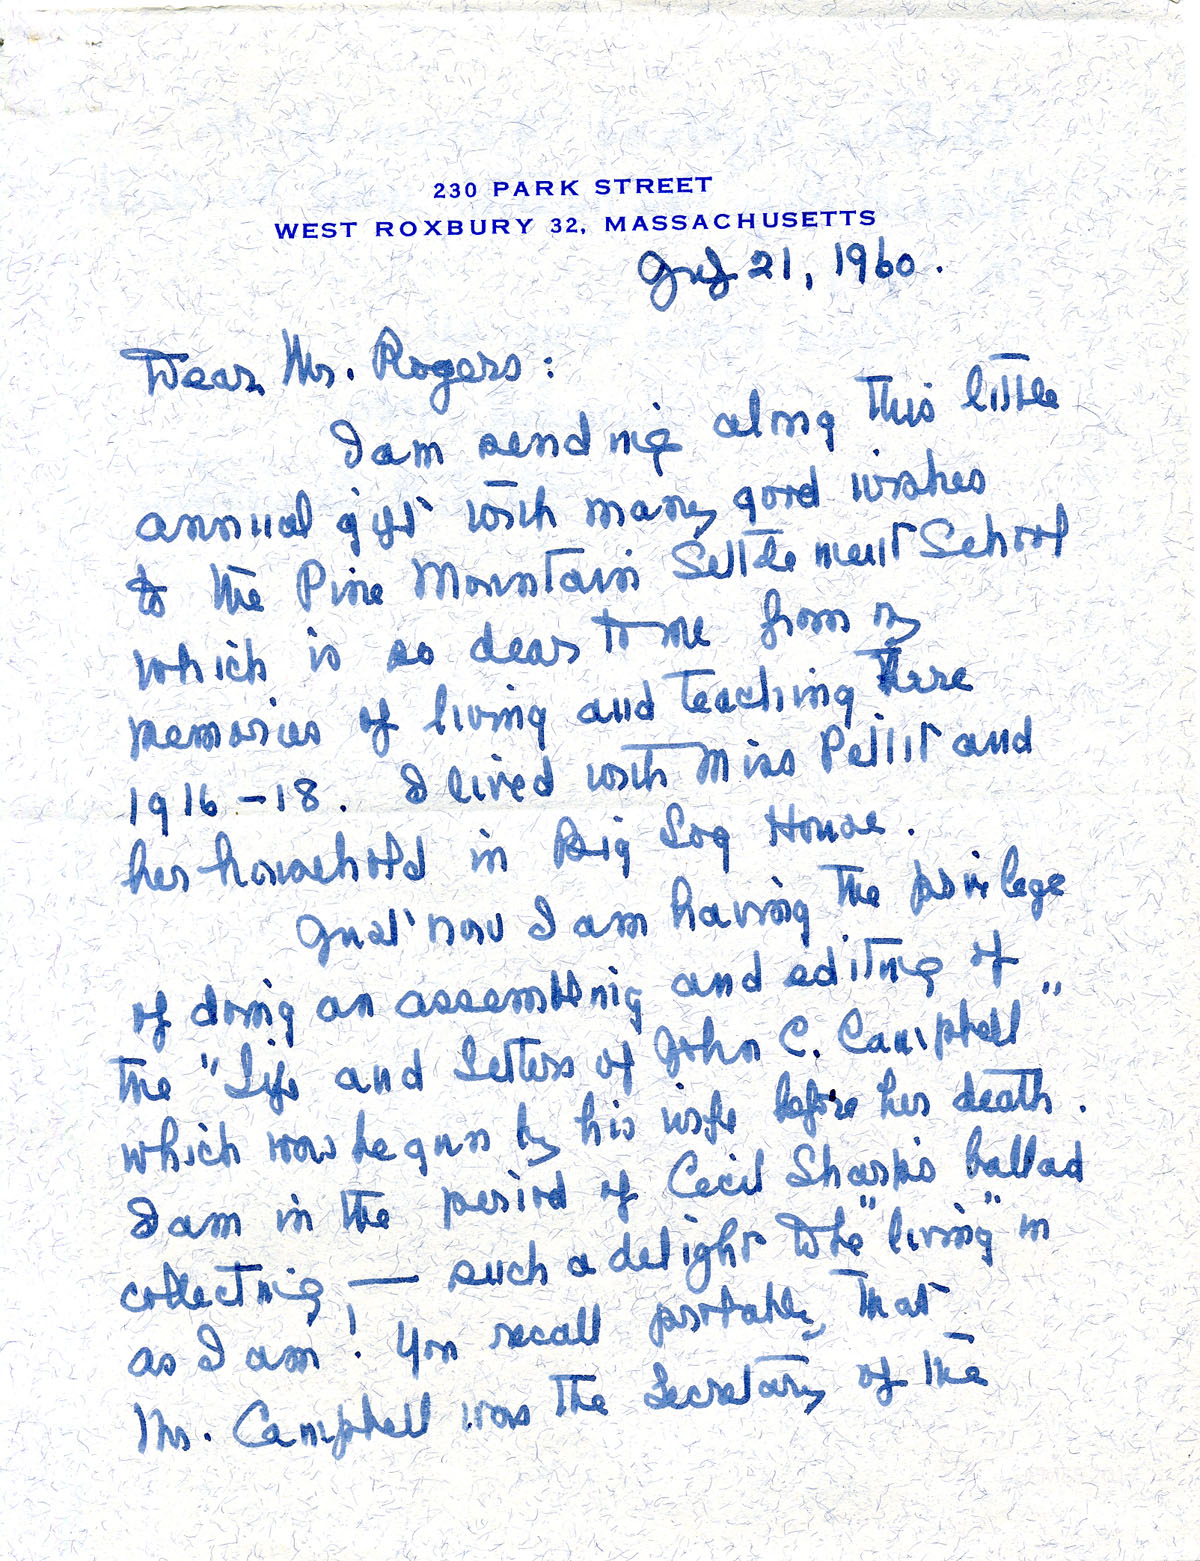 230 PARK STREET
WEST ROXBURY 32, MASSACHUSETTS
July 21, 1960.
Dear Mr. Rogers:
I am sending along this little
annual gift with many good wishes
to the Pine Mountain Settlement School
which is so dear to me from my
memories of living and teaching there
1916-18. I lived with Miss Pettit and
her household in Big Log House.
Just now I am having the privilege
of doing an assembling and editing of
the "Life and Letters of John C. Campbell"
which was begun by his wife before her death.
I am in the period of Cecil Sharp's ballad
collecting — such a delight to be "living" in
as I am! You recall probably, that
Mr. Campbell was the Secretary of the